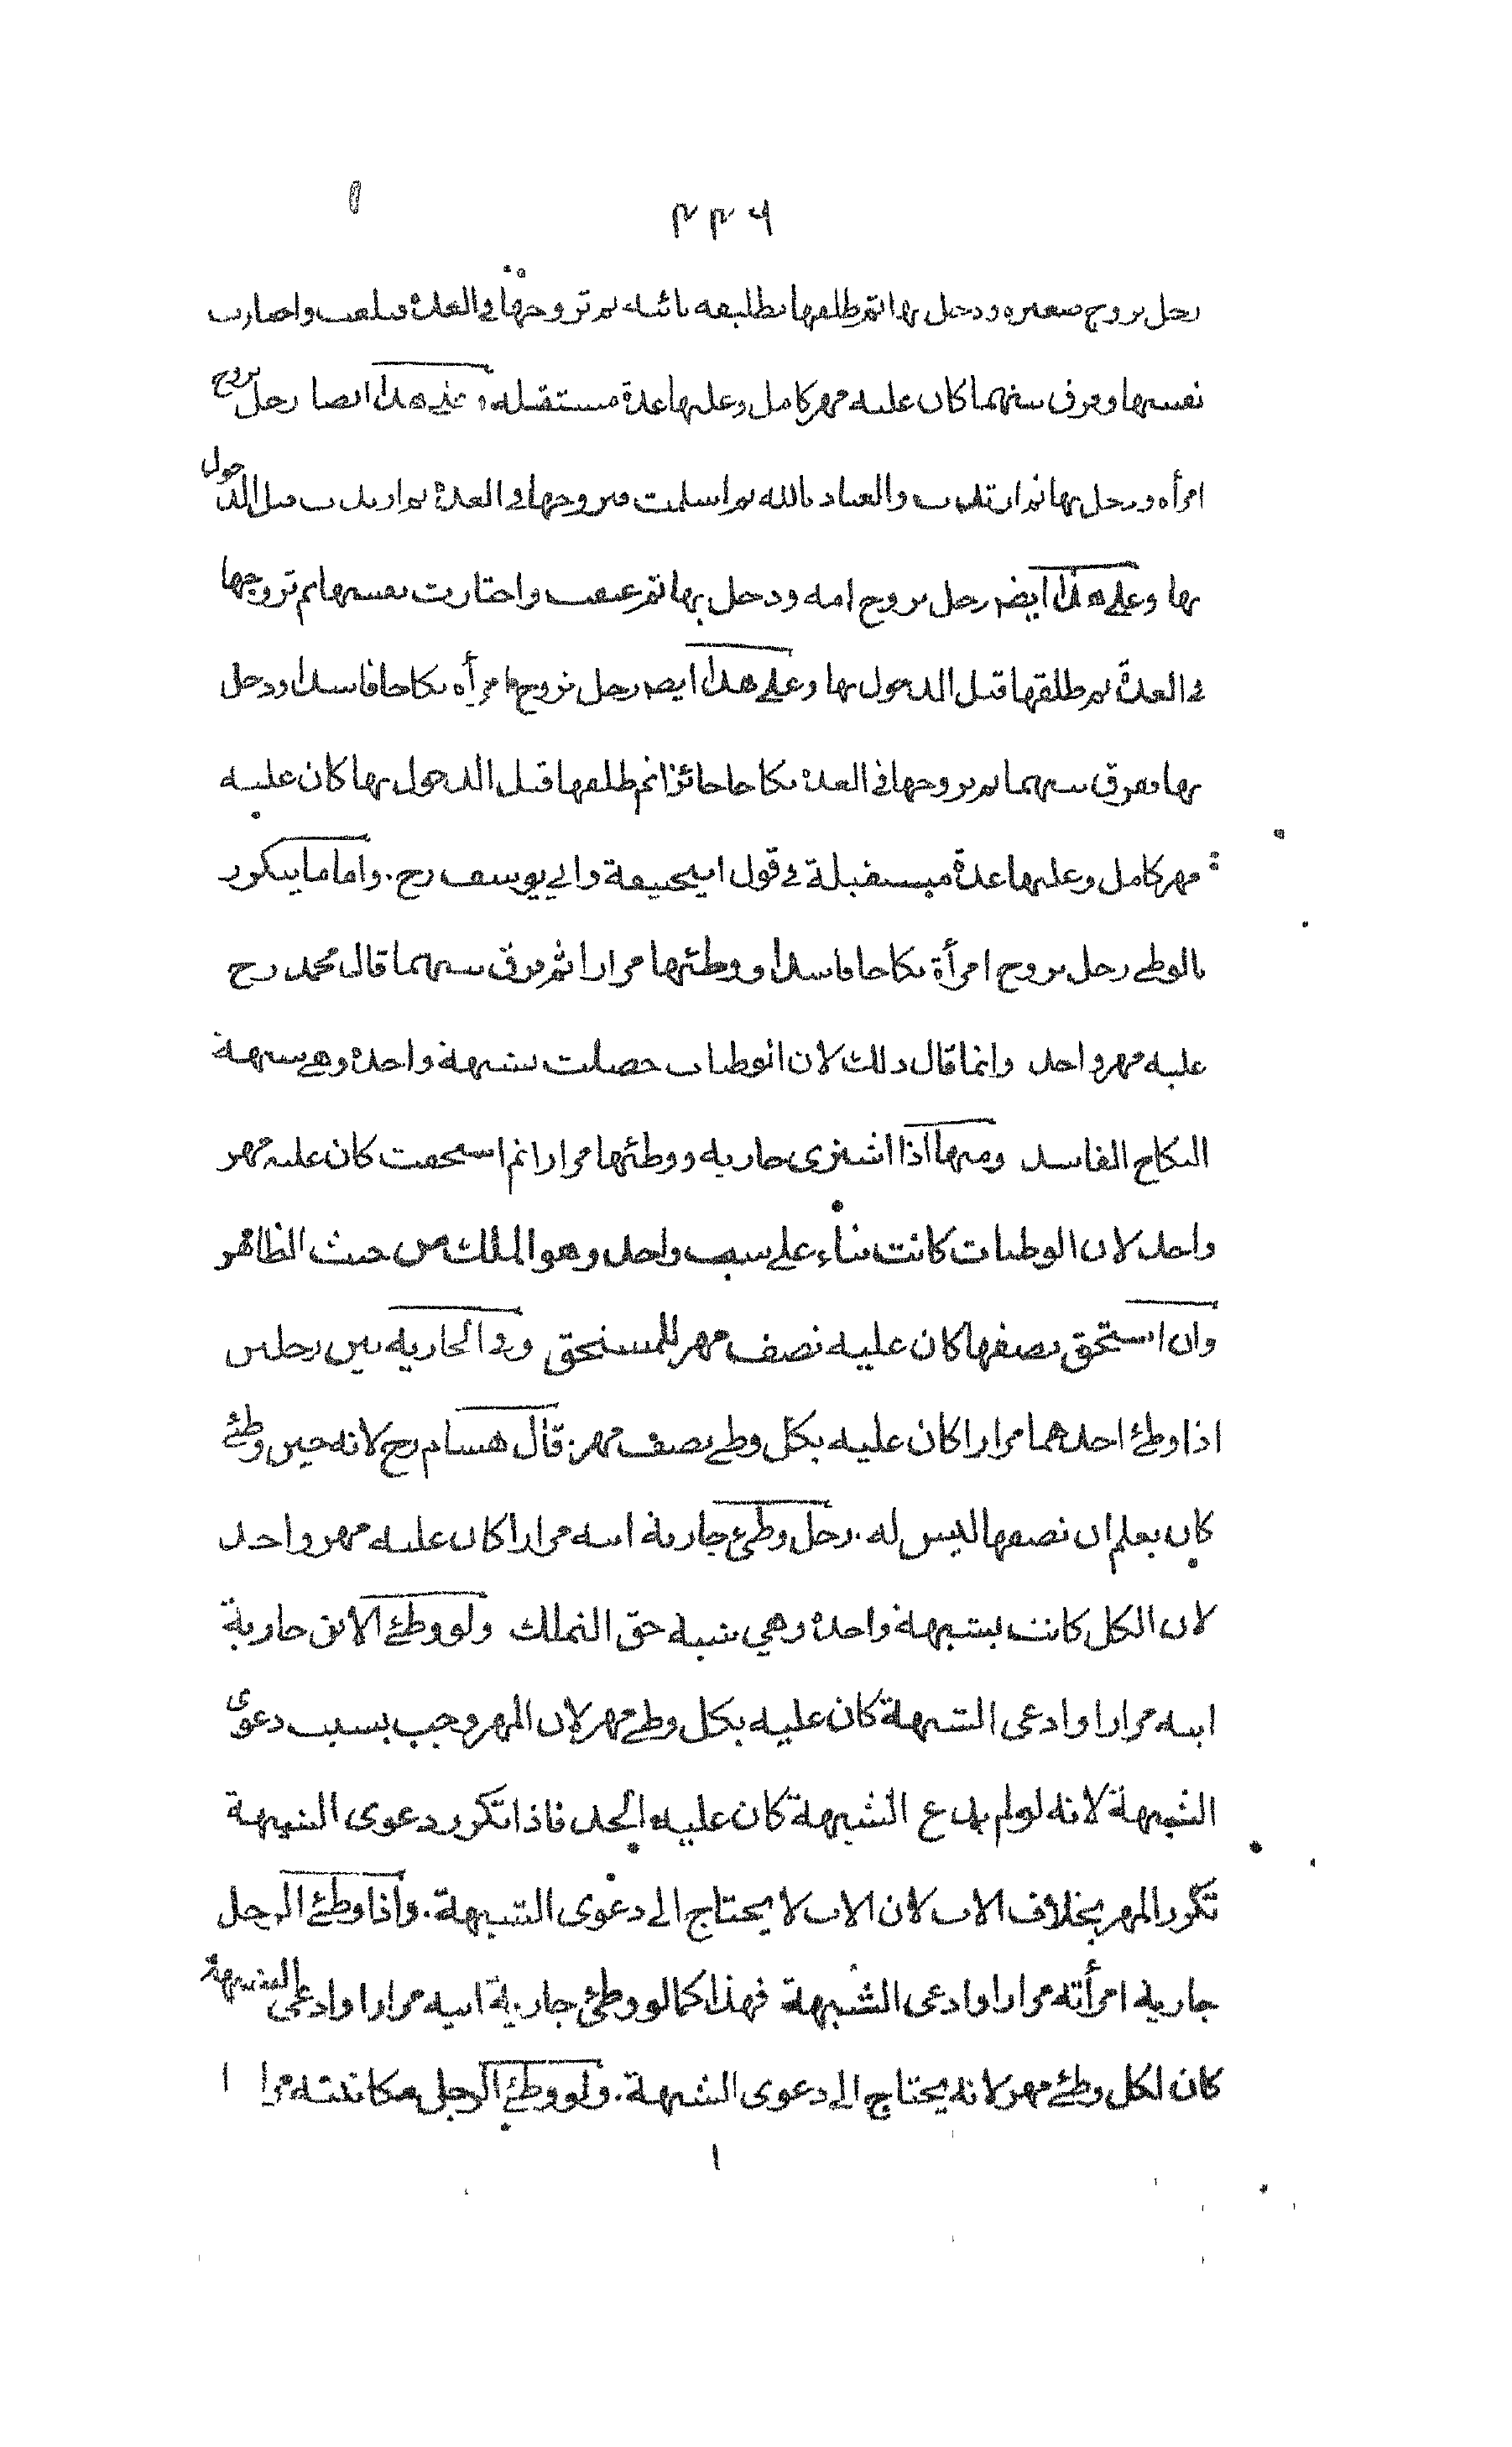 ٤٣٣
رجل تزوج صغيرة ودخل بها ثم طلقها تطليقة بائنة ثم تزوجها في العدة فبلغت واختارت
نفسها وفرق بينهما كان عليه مهر كامل وعليها عدة مستقبلة وعلى هذا ايضا رجل تزوج
امرأة ودخل بها ثم ارتدت والعياذ بالله ثم اسلمت فتزوجها في العدة ثم ارتدت قبل الدخول
بها وعلى هذا ايضا رجل تزوج امة ودخل بها ثم عتقت واختارت نفسها ثم تزوجها
في العدة ثم طلقها قبل الدخول بها وعلى هذا ايضا رجل تزوج امرأة نكاحا فاسدا ودخل
بها وفرق بينهما ثم تزوجها في العدة نكاحا جائزا ثم طلقها قبل الدخول بها كان عليه
مهر كامل وعليها عدة مستقبلة في قول ابيحنيفة وابي يوسف رح. واما ما يتكرر
بالوطي رجل تزوج امرأة نكاحا فاسدا ووطئها مرارا ثم فرق بينهما قال محمد رح
عليه مهر واحد وانما قال ذلك لان الوطيات حصلت بشبهة واحدة وهي شبهة
النكاح الفاسد ومنها اذا اشترى جارية ووطئها مرارا ثم استحقت كان عليه مهر
واحد لان الوطيات كانت بناء على سبب واحد وهو الملك من حيث الظاهر
وان استحق نصفها كان عليه نصف مهر للمستحق وفي الجارية بين رجلين
اذا وطئ احدهما مرارا كان عليه بكل وطي نصف مهر: قال هشام رح لانه حين وطئ
كان يعلم ان نصفها ليس له. رجل وطئ جارية ابنه مرارا كان عليه مهر واحد
لان الكل كانت بشبهة واحدة وهي شبهة حق التملك ولو وطئ الابن جارية
ابيه مرارا وادعى الشبهة كان عليه بكل وطي مهر لان المهر وجب بسبب دعوى
الشبهة لانه لو لم يدع الشبهة كان عليه الحد فاذا تكرر دعوى الشبهة
تكرر المهر بخلاف الاب لان الاب لا يحتاج الى دعوى الشبهة. واذا وطئ الرجل
جارية امرأته مرارا وادعى الشبهة فهذا كما لو وطئ جارية ابيه مرارا وادعى الشبهة
كان لكل وطئ مهر لانه يحتاج الى دعوى الشبهة. ولو وطئ الرجل مكاتبته مرارا